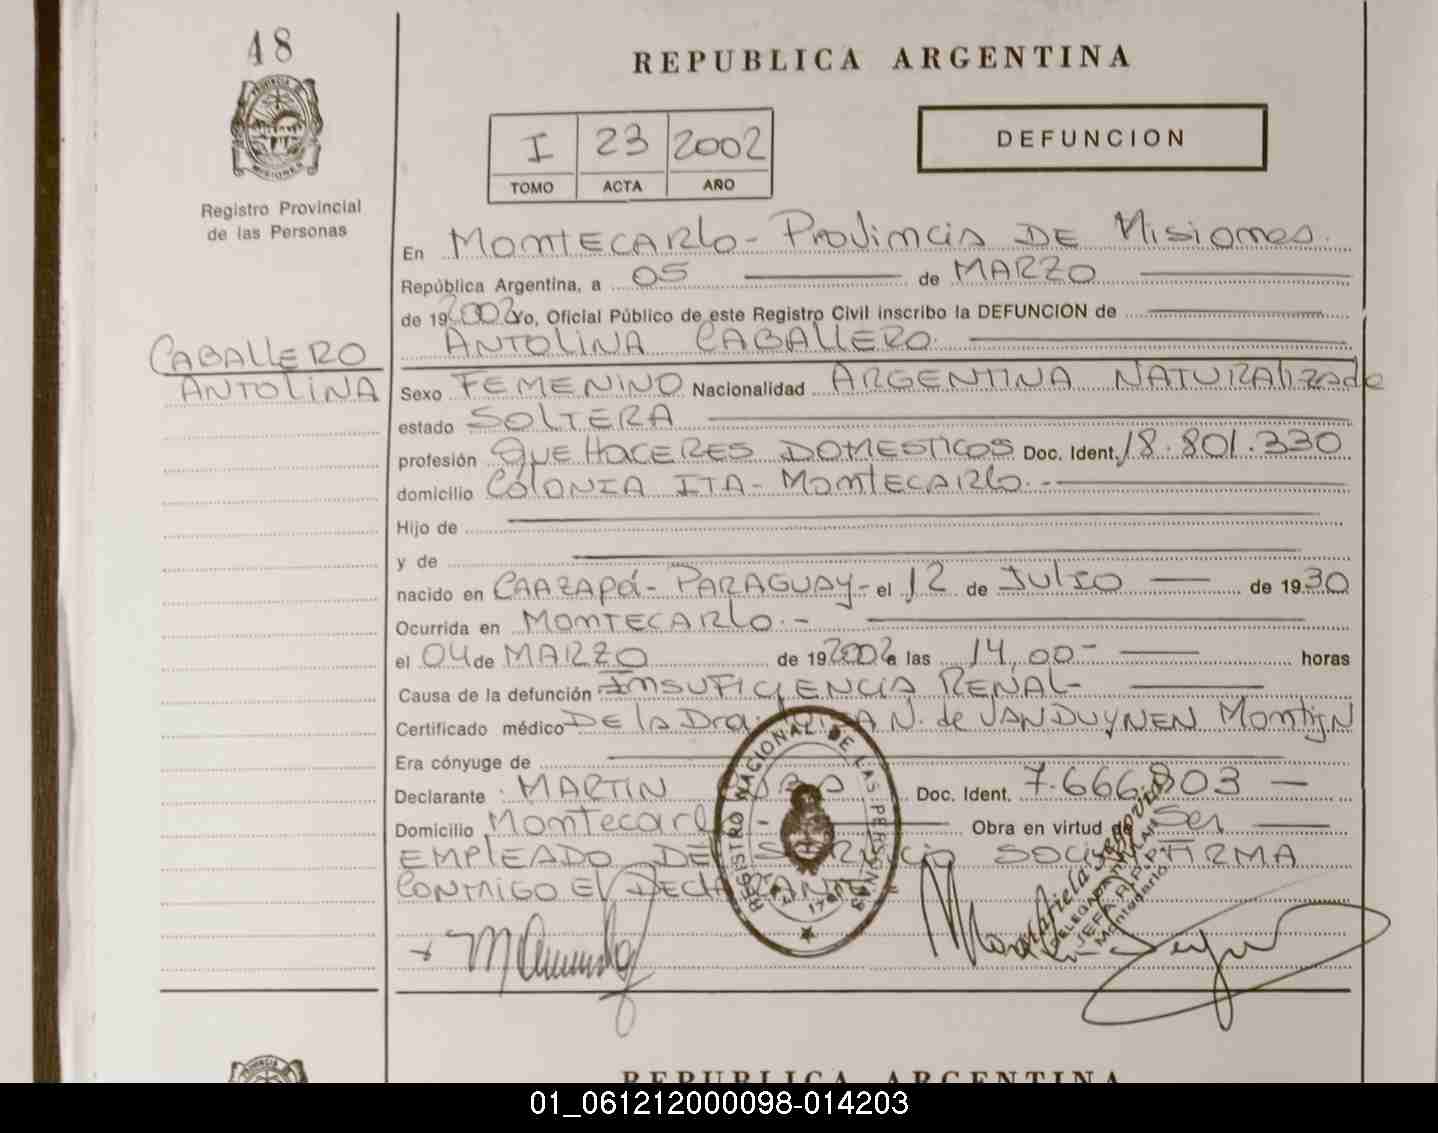 48
REPUBLICA ARGENTINA
I 23 2002
TOMO ACTA AÑO
DEFUNCION
PROVINCIA DE
MISIONES
Registro Provincial
de las Personas
En MONTECARLO - Provincia DE Misiones.
República Argentina, a 05 de MARZO
de 192002 Yo, Oficial Público de este Registro Civil inscribo la DEFUNCION de
ANTOLINA CABALLERO
CABALLERO
ANTOLINA
Sexo FEMENINO Nacionalidad ARGENTINA NATURALizada
estado SOLTERA
profesión QUEHACERES DOMESTICOS Doc. Ident. 18.801.330
domicilio COLONIA ITA - MONTECARLO.-
Hijo de
y de
nacido en CAAZAPÁ - PARAGUAY - el 12 de JULIO de 1930
Ocurrida en MONTECARLO.-
el 04 de MARZO de 192002 a las 14,00- horas
Causa de la defunción INSUFICIENCIA RENAL-
Certificado médico DE la Dra. N. de VANDUYNEN
Era cónyuge de
Declarante MARTIN Doc. Ident. 7.666.803 —
Domicilio Montecarl Obra en virtud de Ser
EMPLEADO DE SERVICIO SOCIAL FIRMA
CONMIGO El DEClARANTE
REGISTRO NACIONAL DE LAS PERSONAS
REPUBLICA ARGENTINA
01_061212000098-014203